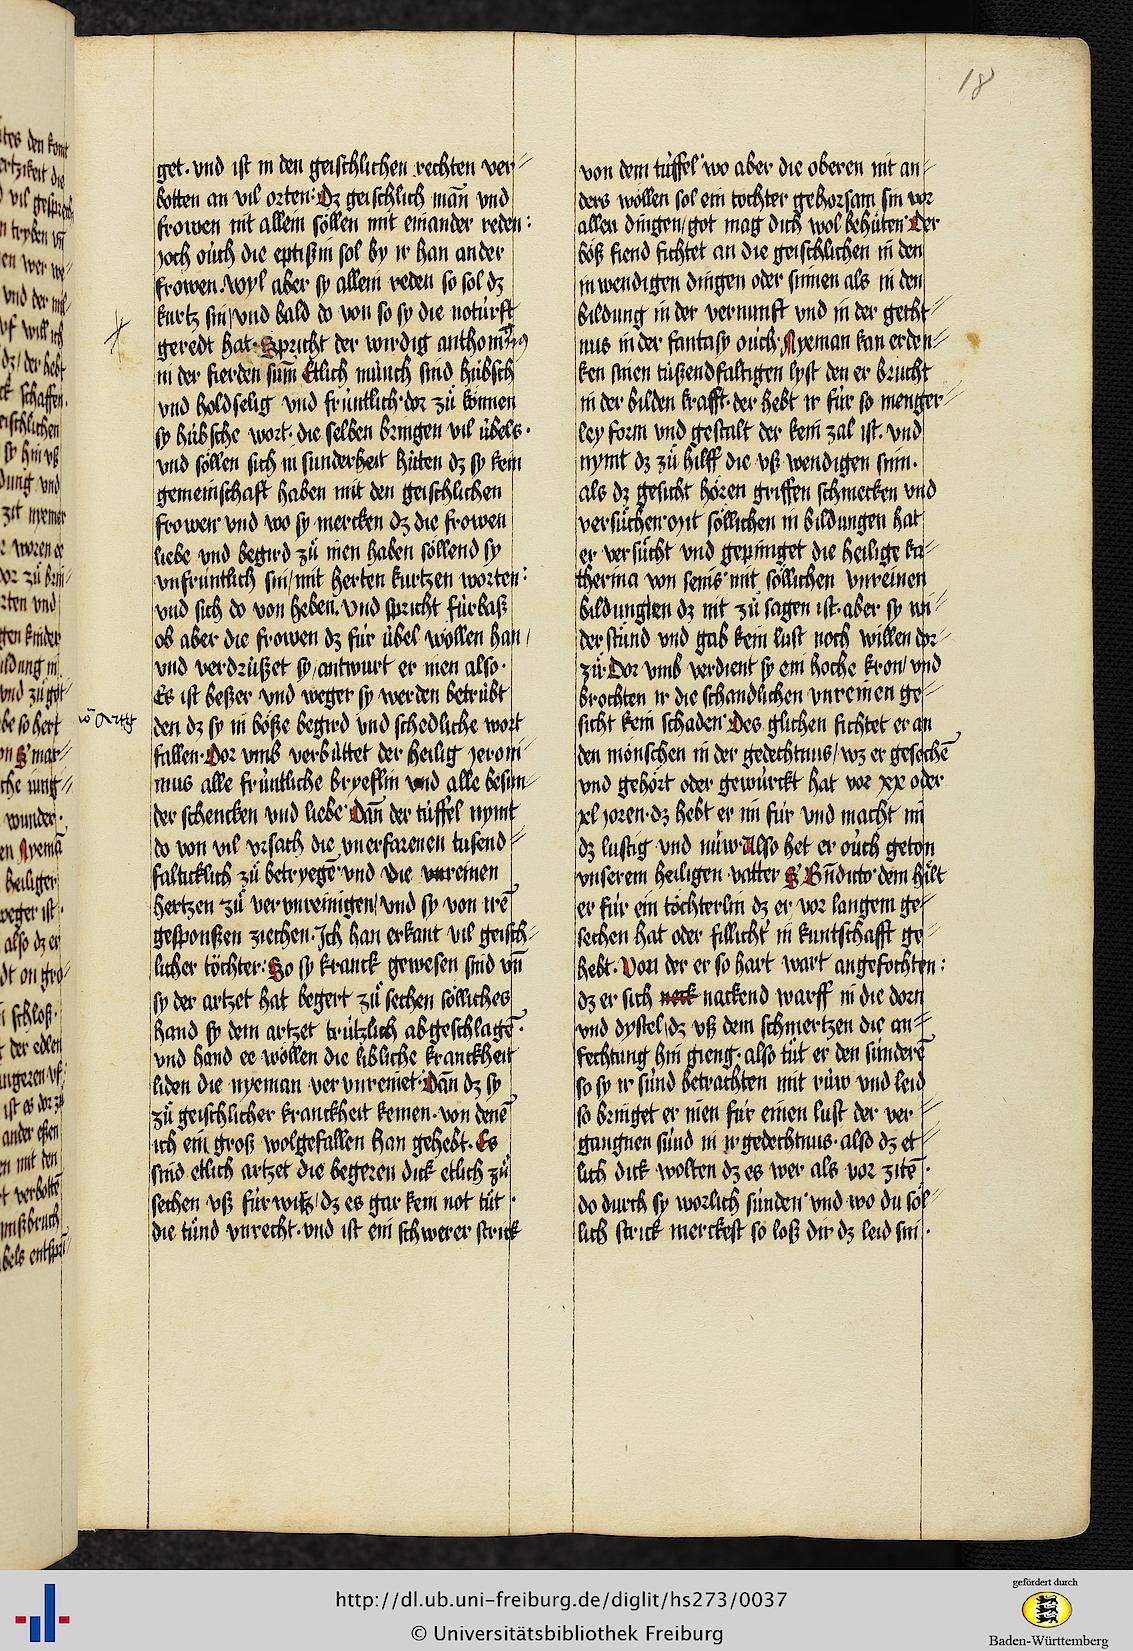 18
get. vnd ist in den geischlichen rechten ver⸗
botten an vil orten: Dz geischlich man̄ vnd
frowen nit allein söllen mit einander reden:
joch oůch die eptißin sol by ir han ander
frowen. Wyl aber sy allein reden so sol dz
kurtz sin / vnd bald do von so sy die noturft
geredt hat. Spricht der wirdig
in der fierden sum̄ Etlich münch sind hübsch
vnd holdselig vnd früntlich. dor zů können
sy hübsche wort. die selben bringen vil übels.
vnd söllen sich in sunderheit hüten dz sy kein
gemeinschaft haben mit den geischlichen
frowen vnd wo sy mercken dz die frowen
liebe vnd begird zů inen haben söllend sy
vnfruntlich sin / mit herten kurtzen worten:
vnd sich do von heben. Vnd spricht fürbaß
ob aber die frowen dz für übel wöllen han /
vnd verdrüßet sy / antwurt er inen also.
Es ist beßer vnd weger sy werden betrübt
den dz sy in böße begird vnd schedliche wort
fallen. Dor vmb verbüttet der heilig jeroni⸗
mus alle früntliche bryeflin vnd alle besun⸗
der schencken vnd liebe. Dan̄ der tüffel nymt
do von vil vrsach die vnerfarenen tusend⸗
falticklich zů betryegē vnd die vnreinen
hertzen zů vervnreinigen / vnd sy von irē
gesponßen ziechen. Ich han erkant vil geisch⸗
licher töchter: So sy kranck gewesen sind vn̄
sy der artzet hat begert zů sechen sölliches
hand sy dem artzet trützlich abgeschlagē.
vnd hand ee wöllen die libliche kranckheit
liden die nyeman vervnreniet. Dan̄ dz sy
zů geischlicher kranckheit kemen. von denē
ich ein groß wolgefallen han gehebt. Es
sind etlich artzet die begeren dick etlich zů
sechen vß fürwitz / dz es gar kein not tůt.
die tůnd vnrecht. vnd ist ein schwerer strick
von dem tüffel wo aber die oberen nit an⸗
ders wöllen sol ein tochter gehorsam sin vor
allen dingen / got mag dich wol behüten. Der
böß fiend fichtet an die geischlichen in den
inwendigen dingen oder sinnen als in den
bildung in der vernunft vnd in der gecht⸗
nus in der fantasy oůch. Nyeman kan erden⸗
ken sinen tußendfaltigen lyst den er brucht
in der bilden krafft. der hebt ir für so menger⸗
ley form vnd gestalt der kein zal ist. vnd
nymt dz zů hilff die vß wendigen sinn.
als dz gesicht hören griffen schmecken vnd
versůchen mit söllichen in bildungen hat
er versůcht vnd gepinget die heilige ka⸗
therina von senis mit söllichen vnreinen
bildungen dz nit zů sagen ist. aber sy wi⸗
derstůnd vnd gab kein lust noch willen dor⸗
zů. Dor vmb verdient sy ein hoche kron / vnd
brochten ir die schandlichen vnreinen ge⸗
sicht kein schaden. Des glichen fichtet er an
den mönschen in der gedechtnus / wz er gesechē
vnd gehört oder gewürckt hat vor xx oder
xl joren. dz hebt er im für vnd macht im
dz lustig vnd nüw. Also het er oůch geton
vnserem heiligen vatter S. dem hält
er für ein töchterlin dz er vor langem ge⸗
sechen hat oder fillicht in kuntschafft ge⸗
hebt. Von der er so hart wart angefochten:
dz er sich neck nackend warff in die dorn
vnd dystel / dz vß dem schmertzen die an⸗
fechtung hin gieng. also tůt er den sünderē
so sy ir sünd betrachten mit rüw vnd leid
so bringet er inen für einen lust der ver⸗
gangnen sünd in ir gedechtnus. also dz et⸗
lich dick wolten dz es wer als vor zitē.
do durch sy worlich sünden. vnd wo du söl⸗
lich strick merckest so loß dir dz leid sin.
http://dl.ub.uni-freiburg.de/diglit/hs273/0037
© Universitätsbibliothek Freiburg
gefördert durch
Baden-Württemberg